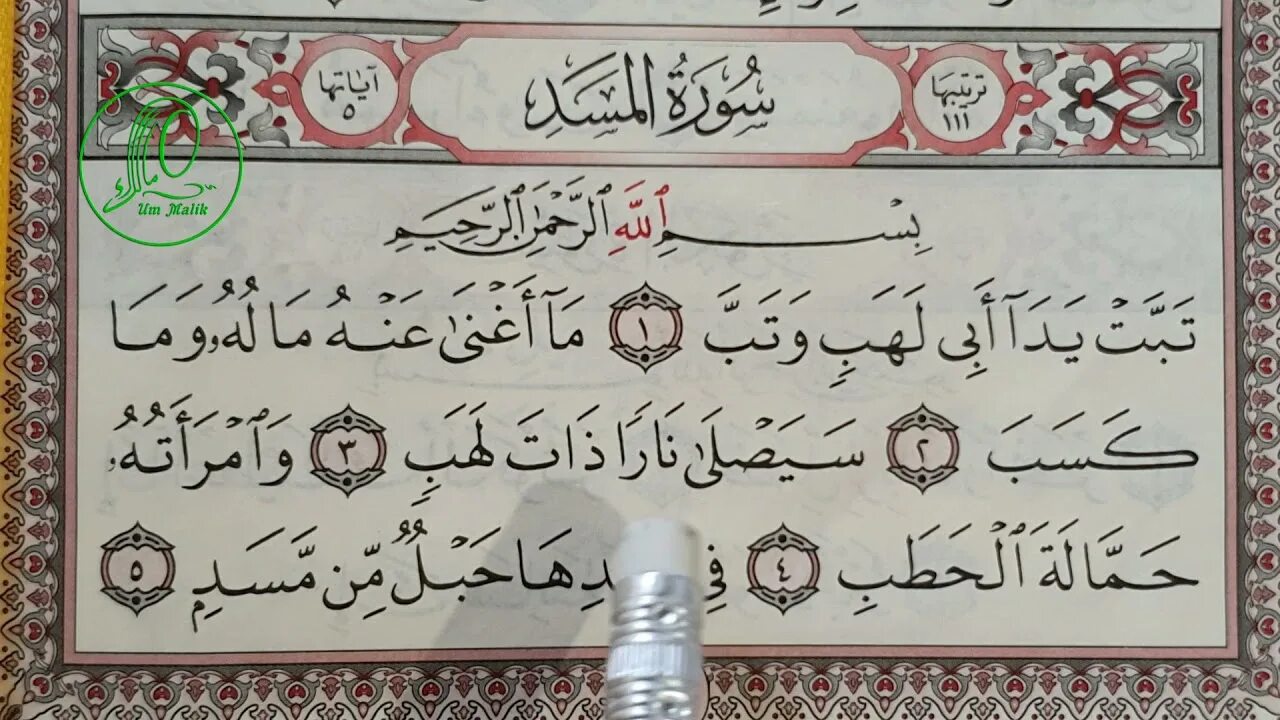 ترتيبها
١١١
سُورَةُ المَسَدِ
آيَاتها
٥
مالك
Um Malik
بِسْمِ ٱللَّهِ ٱلرَّحْمَٰنِ ٱلرَّحِيمِ
تَبَّتْ يَدَآ أَبِي لَهَبٍ وَتَبَّ ١ مَآ أَغْنَىٰ عَنْهُ مَالُهُۥ وَمَا
كَسَبَ ٢ سَيَصْلَىٰ نَارًا ذَاتَ لَهَبٍ ٣ وَٱمْرَأَتُهُۥ
حَمَّالَةَ ٱلْحَطَبِ ٤ فِي حَبْلٌ مِّن مَّسَدٍ ٥